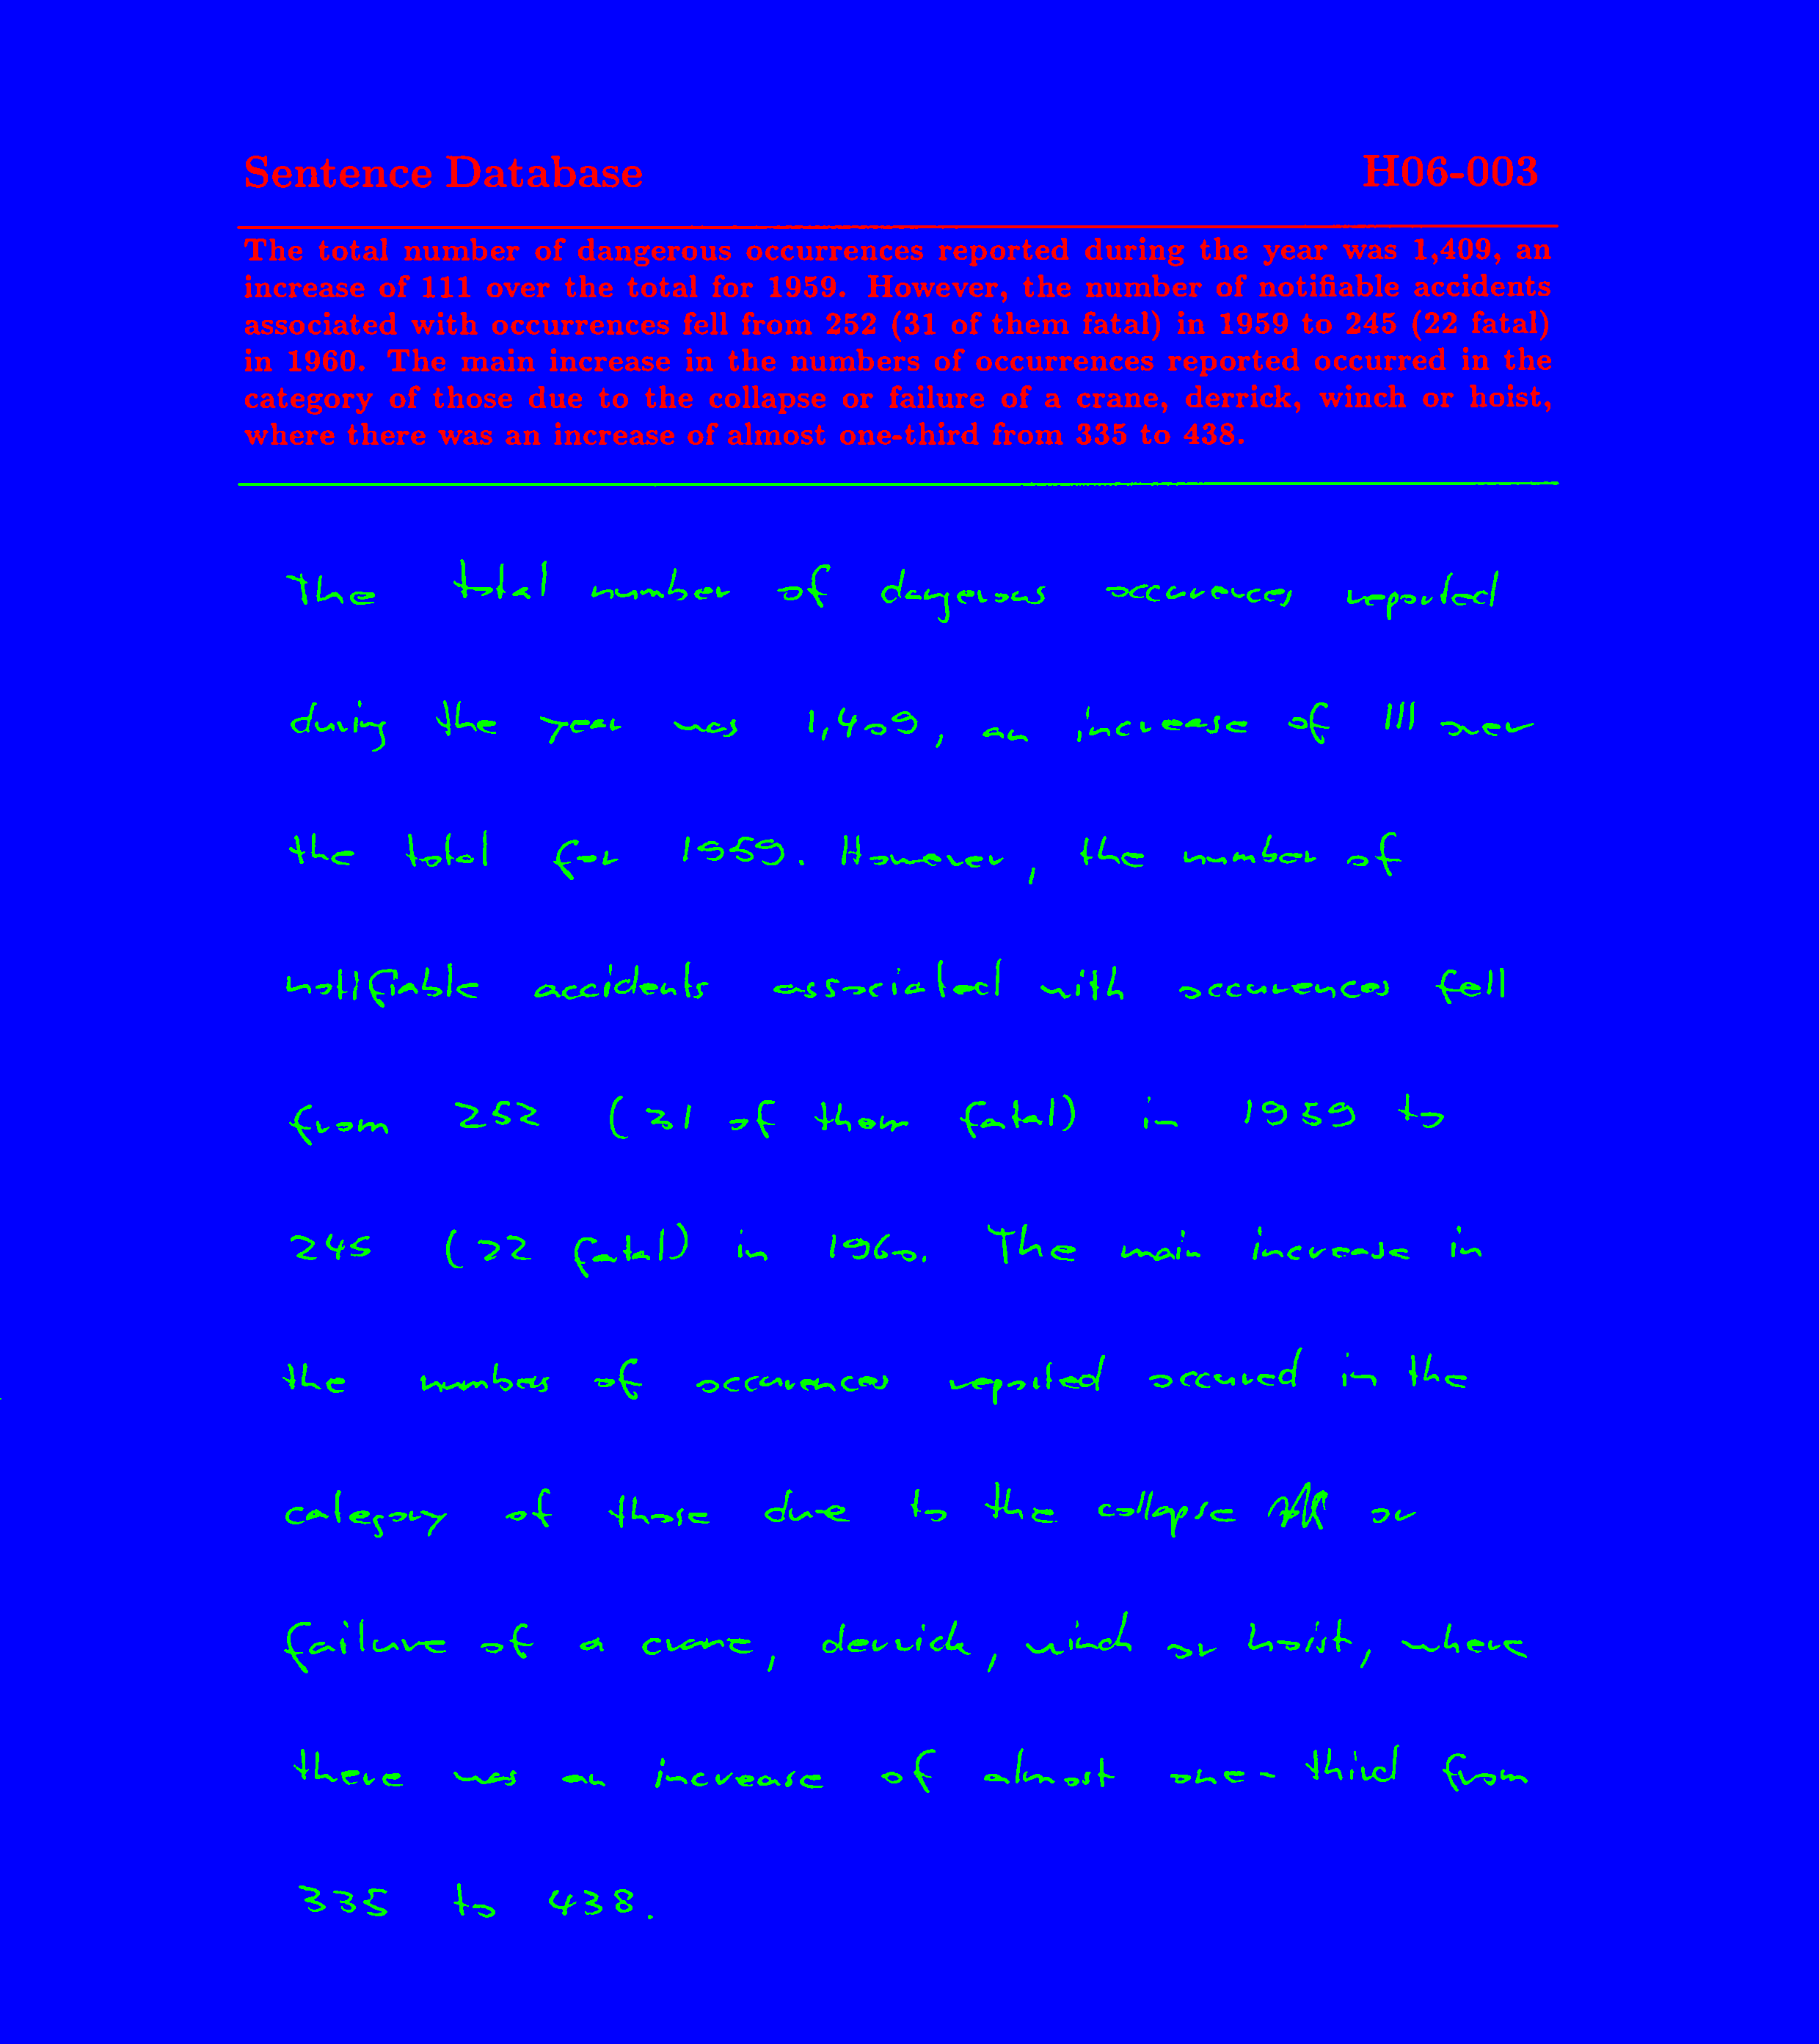 Sentence Database H06-003
The total number of dangerous occurrences reported during the year was 1,409, an
increase of 111 over the total for 1959. However, the number of notifiable accidents
associated with occurrences fell from 252 (31 of them fatal) in 1959 to 245 (22 fatal)
in 1960. The main increase in the numbers of occurrences reported occurred in the
category of those due to the collapse or failure of a crane, derrick, winch or hoist,
where there was an increase of almost one-third from 335 to 438.
The total number of dangerous occurences reported
during the year was 1,409, an increase of 111 over
the total for 1959. However, the number of
notifiable accidents associated with occurences fell
from 252 (31 of them fatal) in 1959 to
245 (22 fatal) in 1960. The main increase in
the numbers of occurences reported occured in the
category of those due to the collapse or
failure of a crane, derrick, winch or hoist, where
there was an increase of almost one-third from
335 to 438.